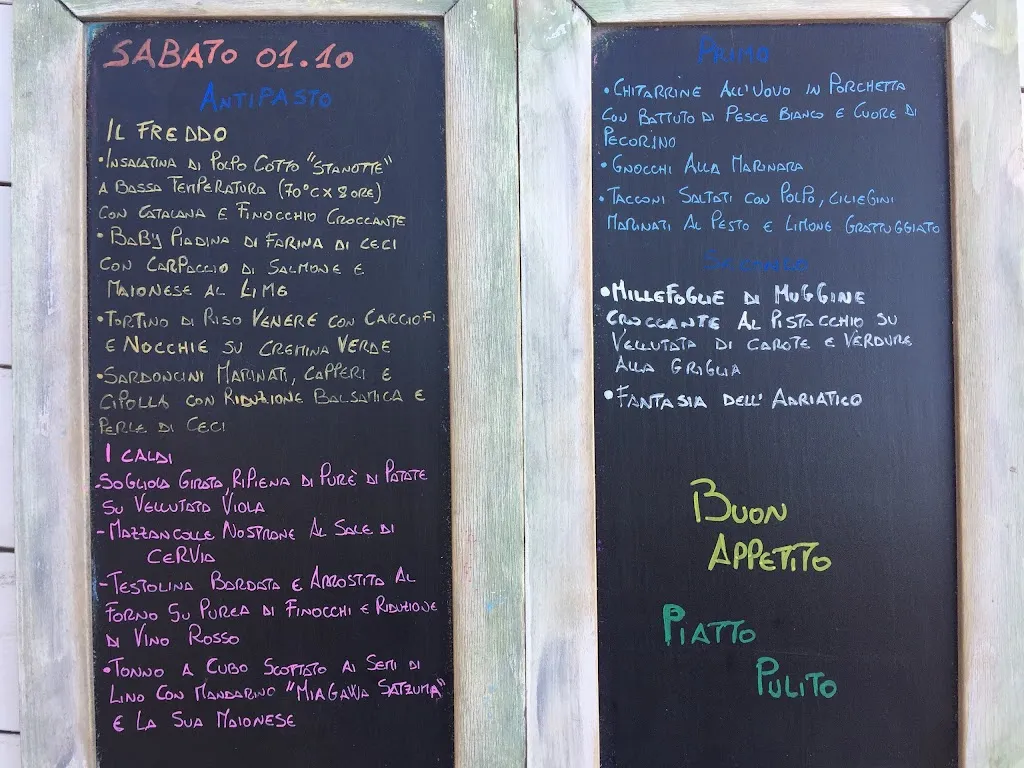 SABATO 01.10
ANTIPASTO
IL FREDDO
•INSALATINA DI POLPO COTTO "STANOTTE"
A BASSA TEMPERATURA (70°C X 8 ORE)
CON CATALANA E FINOCCHIO CROCCANTE
•BABY PIADINA DI FARINA DI CECI
CON CARPACCIO DI SALMONE E
MAIONESE AL LIME
•TORTINO DI RISO VENERE CON CARCIOFI
E NOCCHIE SU CREMINA VERDE
•SARDONCINI MARINATI, CAPPERI E
CIPOLLA CON RIDUZIONE BALSAMICA E
PERLE DI CECI
I CALDI
-SOGLIOLA GIRATA, RIPIENA DI PURÈ DI PATATE
SU VELLUTATA VIOLA
-MAZZANCOLLE NOSTRANE AL SALE DI
CERVIA
-TESTOLINA BARDATA E ARROSTITA AL
FORNO SU PUREA DI FINOCCHI E RIDUZIONE
DI VINO ROSSO
•TONNO A CUBO SCOTTATO AI SEMI DI
LINO CON MANDARINO "MIAGAWA SATZUMA"
E LA SUA MAIONESE
PRIMO
•CHITARRINE ALL'UOVO IN PORCHETTA
CON BATTUTO DI PESCE BIANCO E CUORE DI
PECORINO
•GNOCCHI ALLA MARINARA
•TACCONI SALTATI CON POLPO, CILIEGINI
MARINATI AL PESTO E LIMONE GRATTUGGIATO
SECONDO
•MILLEFOGLIE DI MUGGINE
CROCCANTE AL PISTACCHIO SU
VELLUTATA DI CAROTE E VERDURE
ALLA GRIGLIA
•FANTASIA DELL'ADRIATICO
BUON
APPETITO
PIATTO
PULITO